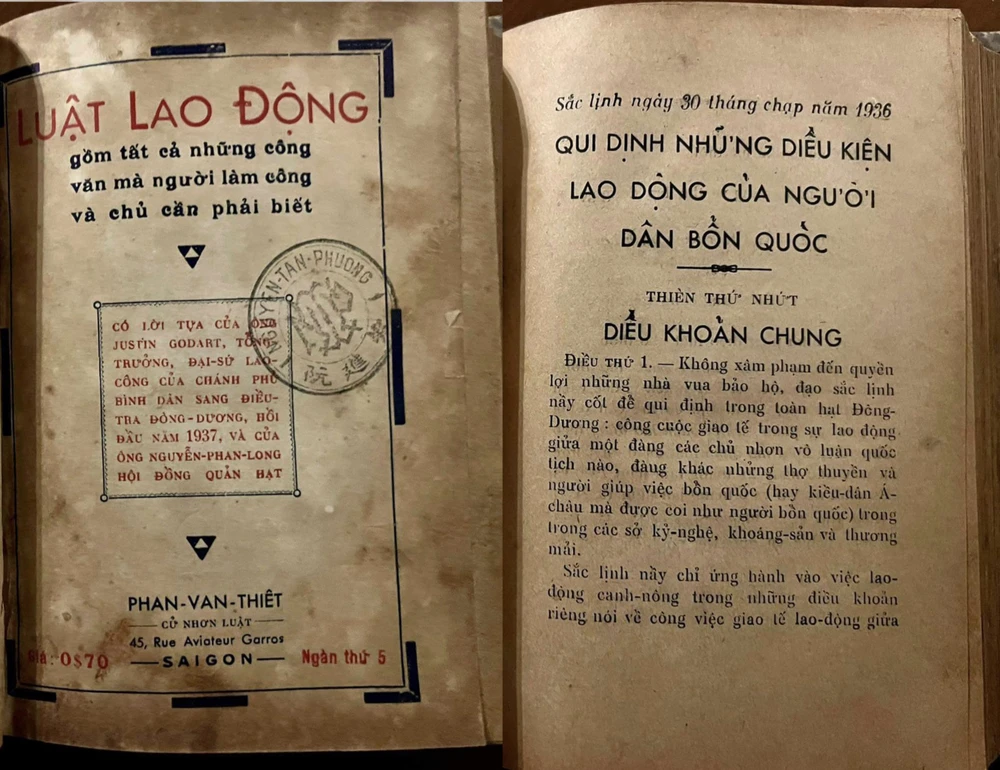 LUẬT LAO ĐỘNG
gồm tất cả những công
văn mà người làm công
và chủ cần phải biết
NGUYEN-TAN-PHUONG
進 阮
CÓ LỜI TỰA CỦA ÔNG
JUSTIN GODART, TỔNG
TRƯỞNG, ĐẠI-SỨ LAO-
CÔNG CỦA CHÁNH PHỦ
BÌNH DÂN SANG ĐIỀU-
TRA ĐÔNG-DƯƠNG, HỒI
ĐẦU NĂM 1937, VÀ CỦA
ÔNG NGUYỄN-PHAN-LONG
HỘI ĐỒNG QUẢN HẠT
PHAN-VAN-THIÊT
CỬ NHƠN LUẬT
45, Rue Aviateur Garros
Giá: 0$70 —SAIGON— Ngàn thứ 5
Sắc lịnh ngày 30 tháng chạp năm 1936
QUI DỊNH NHỮNG DIỀU KIỆN
LAO DỘNG CỦA NGƯỜI
DÂN BỔN QUỐC
THIÊN THỨ NHỨT
DIỀU KHOẢN CHUNG
ĐIỀU THỨ 1. — Không xâm phạm đến quyền
lợi những nhà vua bảo hộ, đạo sắc lịnh
nầy cốt để qui định trong toàn hạt Đông-
Dương : công cuộc giao tế trong sự lao động
giửa một đàng các chủ nhơn vô luận quốc
tịch nào, đàng khác những thợ thuyền và
người giúp việc bổn quốc (hay kiều-dân Á-
châu mà được coi như người bổn quốc) trong
trong các sở kỷ-nghệ, khoáng-sản và thương
mải.
Sắc lịnh nầy chỉ ứng hành vào việc lao-
động canh-nông trong những điều khoản
riêng nói về công việc giao tế lao-động giửa